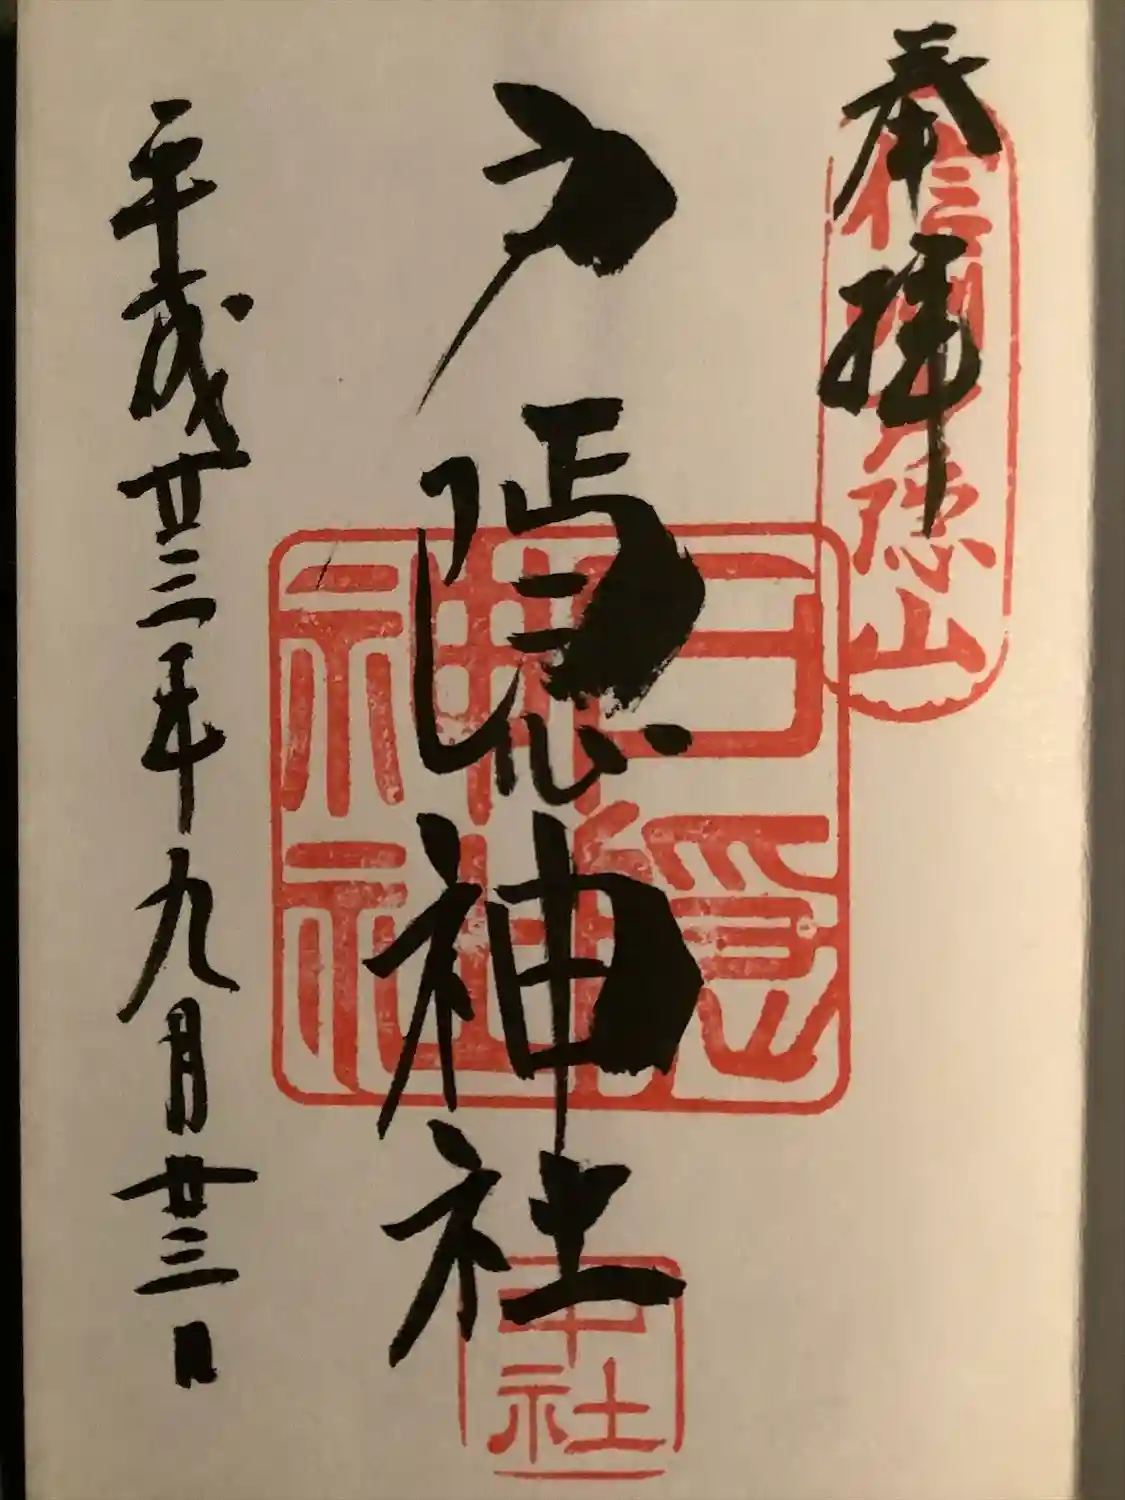 奉拝
信州戸隠山
戸隠神社
戸隠
神社
中社
平成廿三年九月廿三日